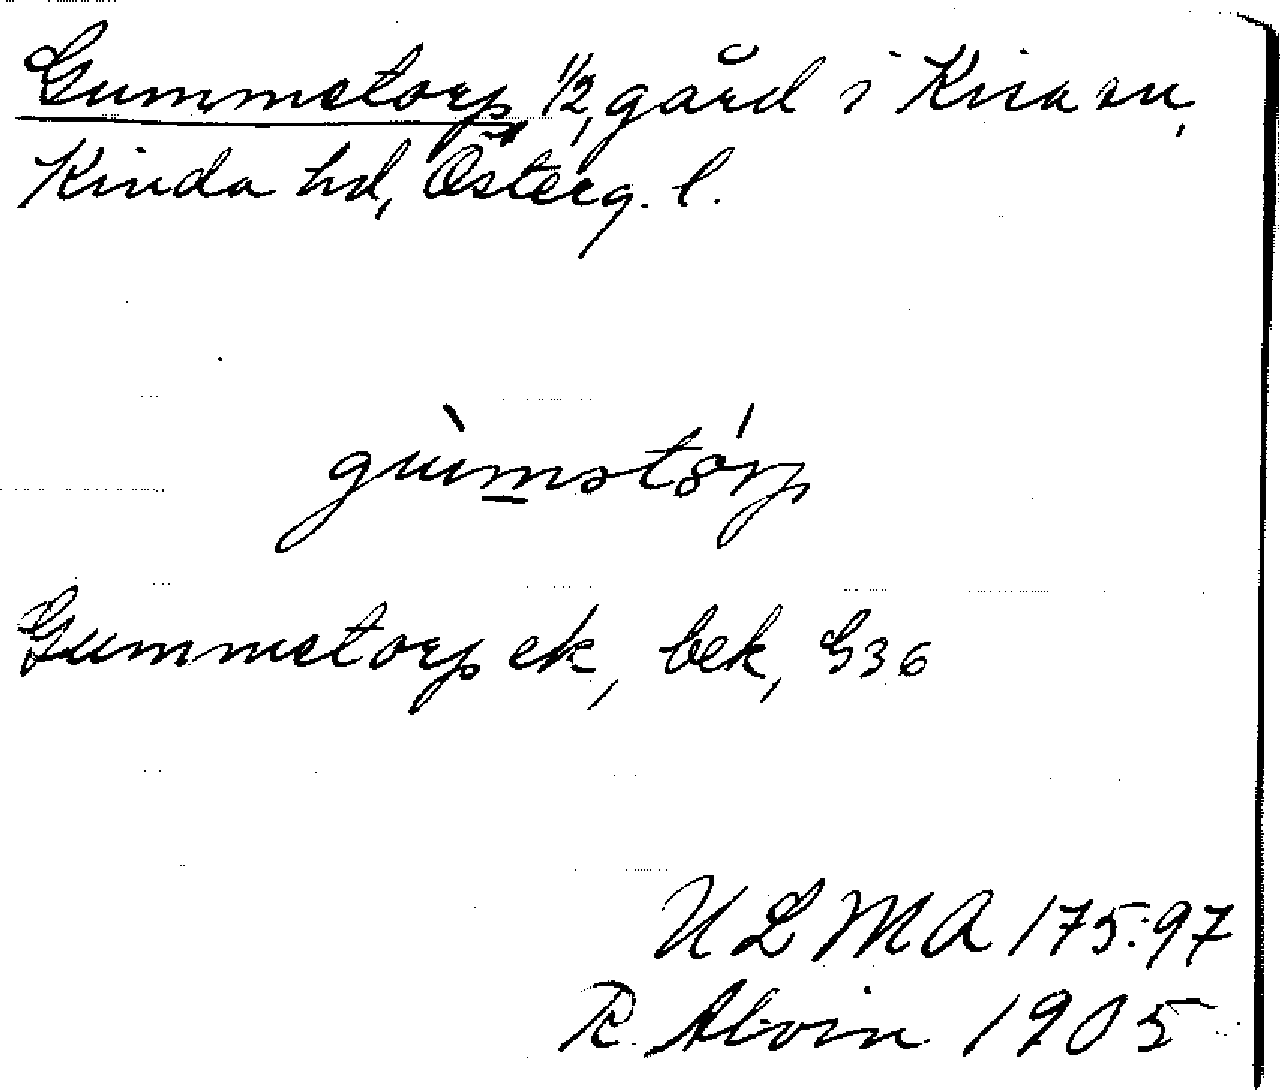 Gummetorp, 1/2, gård i Kisa sn,
Kinda hd, Österg. l.
gùm̲stórp
Gummetorp ek, bek, G36
ULMA 175:97
R. Alvin 1905